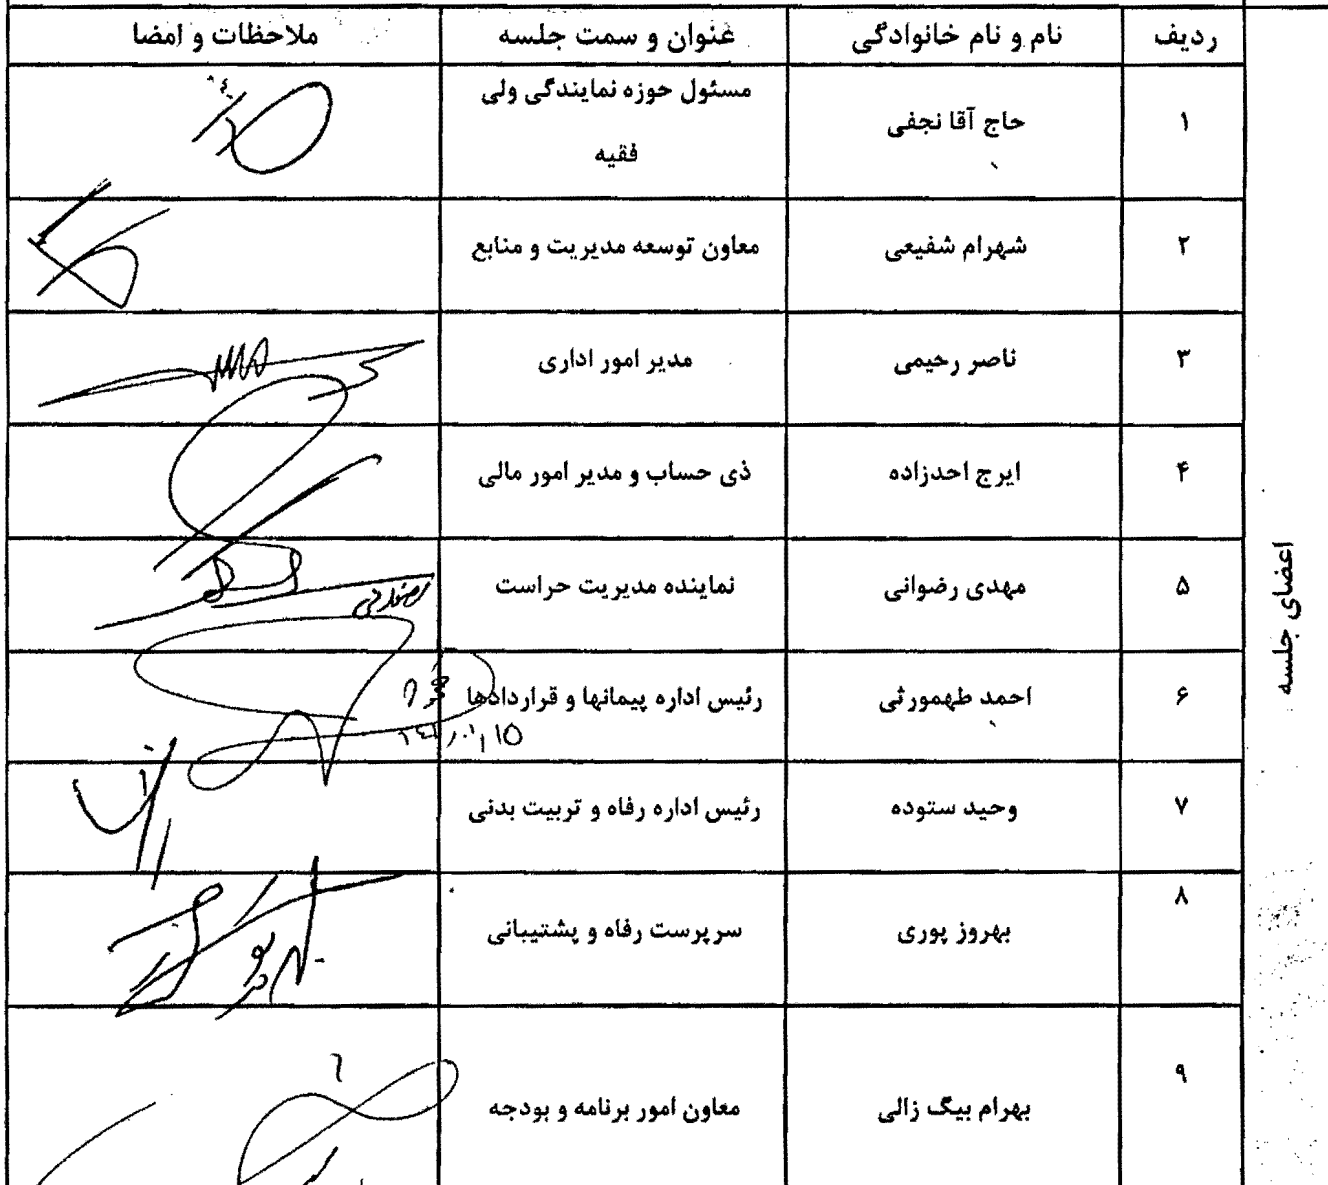 ردیف نام و نام خانوادگی عنوان و سمت جلسه ملاحظات و امضا
۱ حاج آقا نجفی مسئول حوزه نمایندگی ولی
فقیه
۲ شهرام شفیعی معاون توسعه مدیریت و منابع
۳ ناصر رحیمی مدیر امور اداری
۴ ایرج احدزاده ذی حساب و مدیر امور مالی
۵ مهدی رضوانی نماینده مدیریت حراست
۶ احمد طهمورثی رئیس اداره پیمانها و قراردادها
۷ وحید ستوده رئیس اداره رفاه و تربیت بدنی
۸ بهروز پوری سرپرست رفاه و پشتیبانی
۹ بهرام بیگ زالی معاون امور برنامه و بودجه
اعضای جلسه